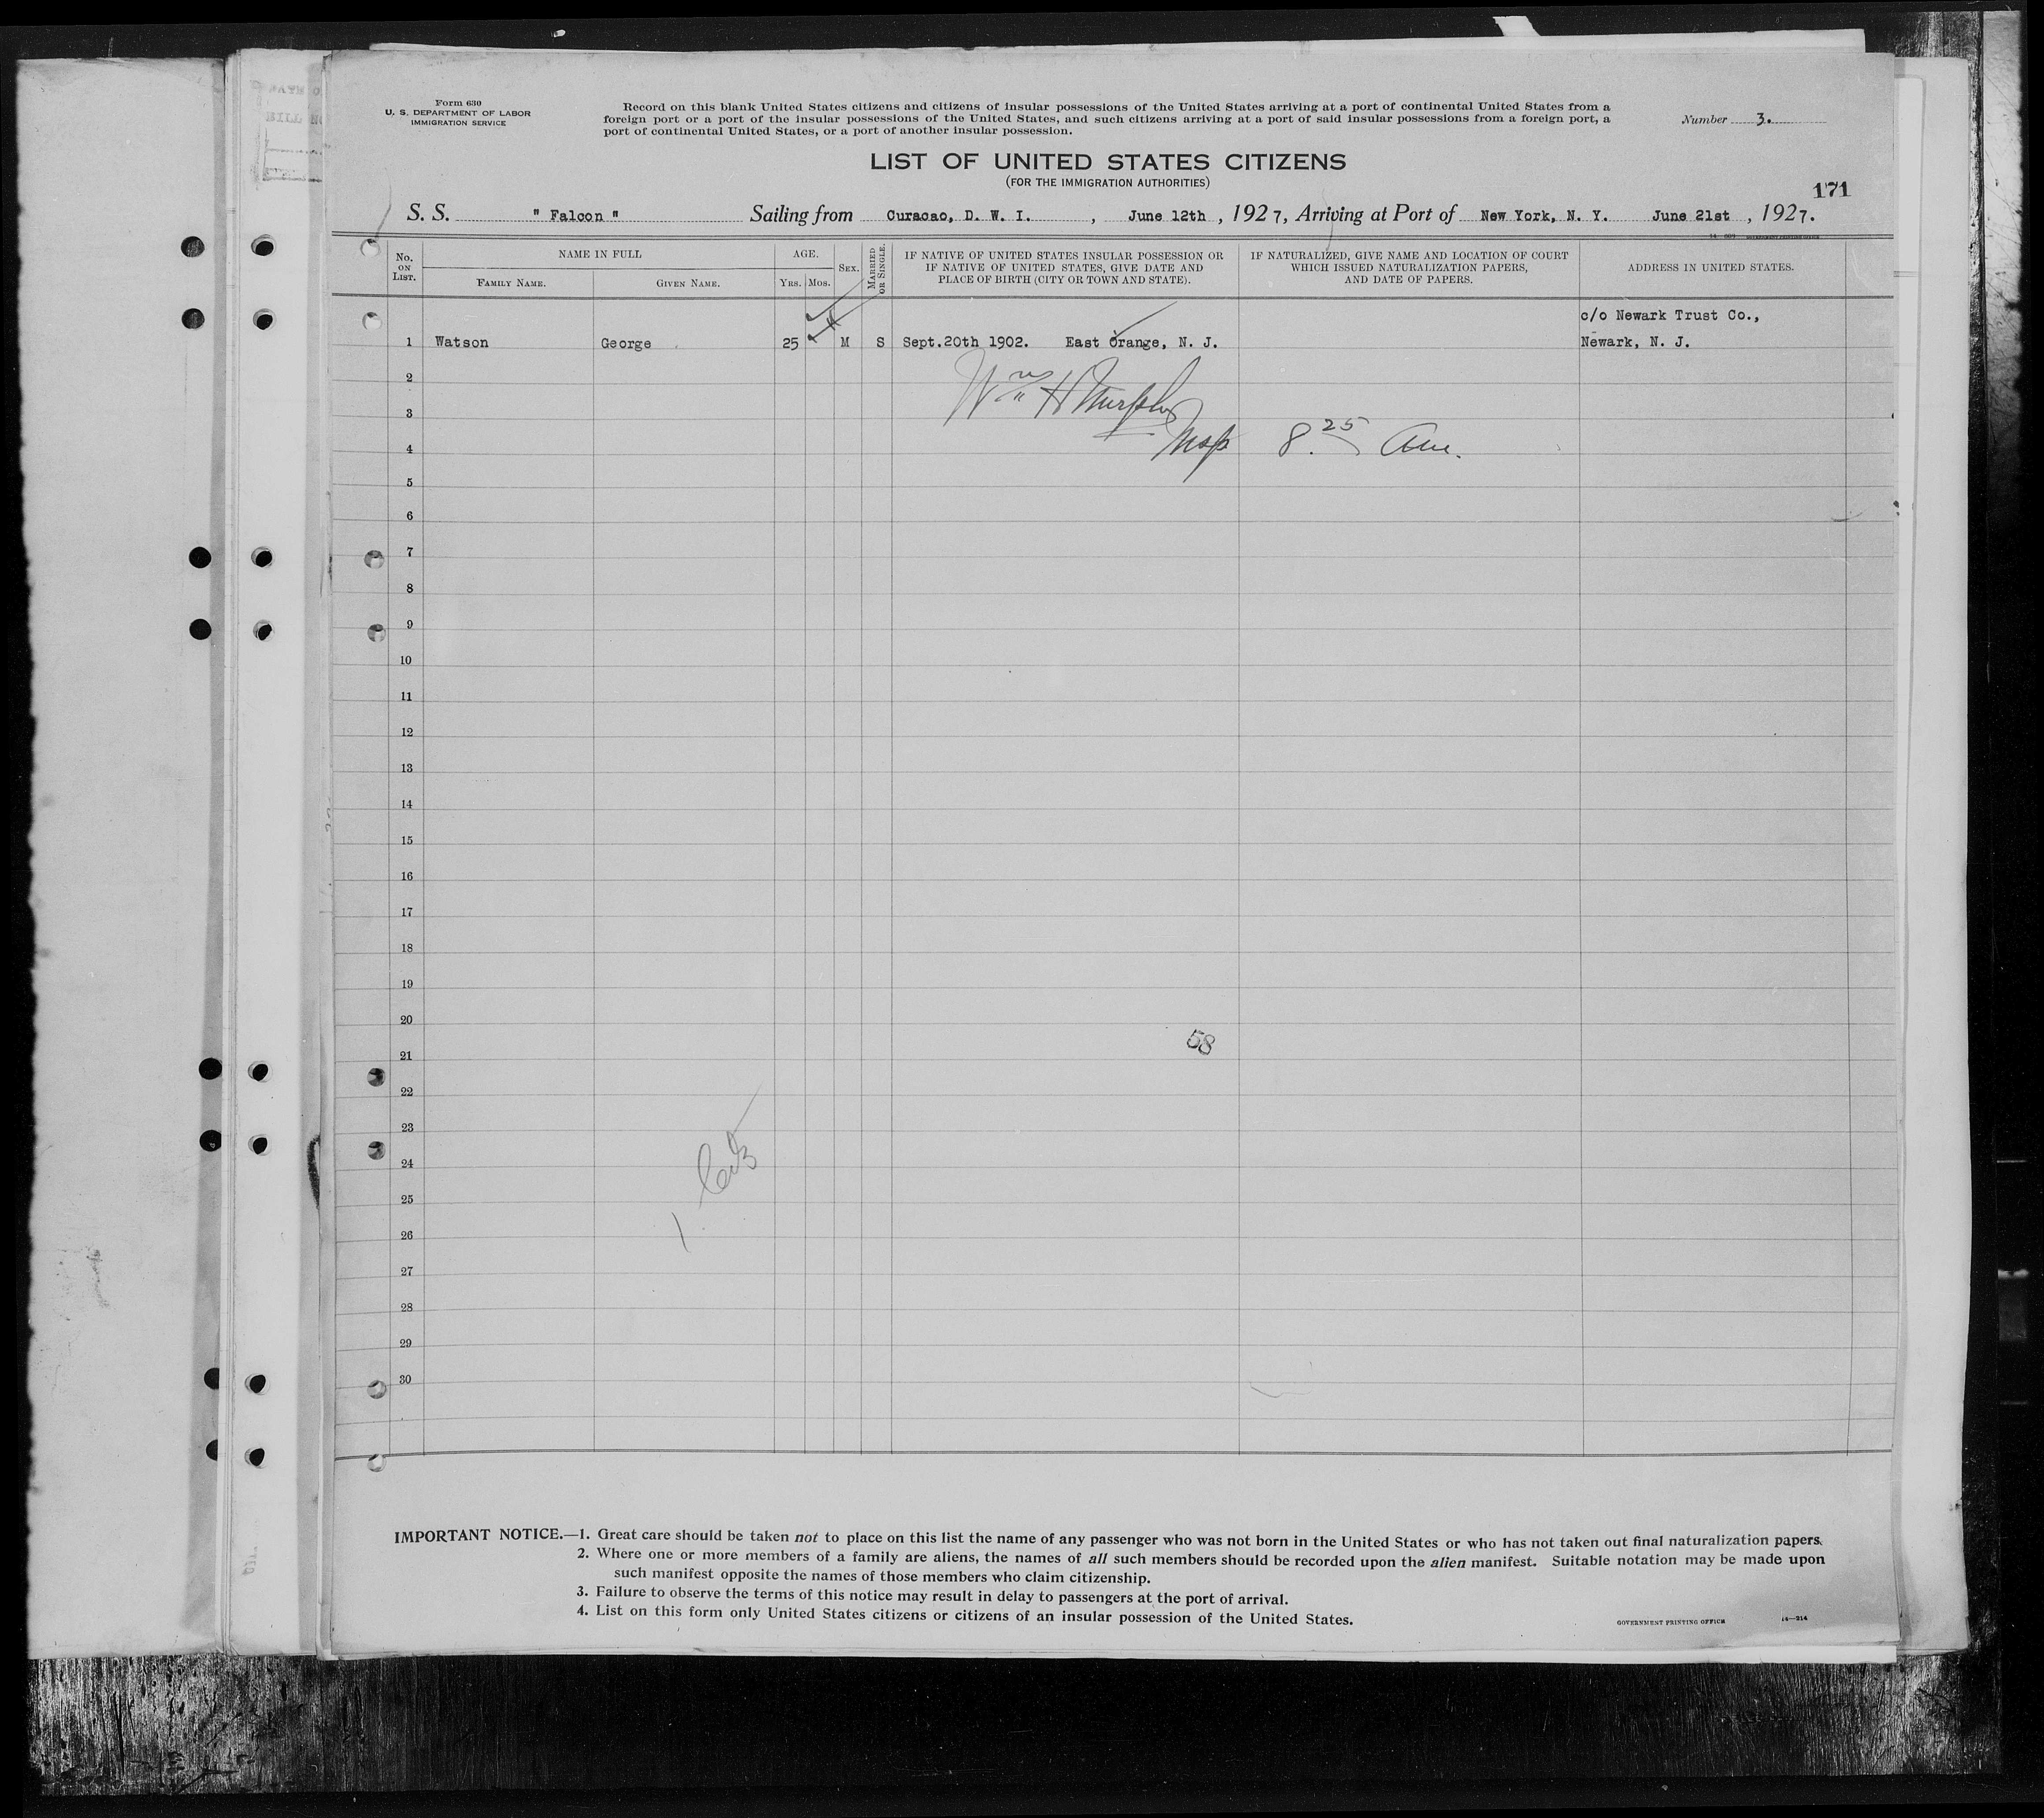 Form 630
U. S. DEPARTMENT OF LABOR
IMMIGRATION SERVICE
Record on this blank United States citizens and citizens of insular possessions of the United States arriving at a port of continental United States from a
foreign port or a port of the insular possessions of the United States, and such citizens arriving at a port of said insular possessions from a foreign port, a
port of continental United States, or a port of another insular possession.
Number 3.
LIST OF UNITED STATES CITIZENS
(FOR THE IMMIGRATION AUTHORITIES)
171
S. S. " Falcon " Sailing from Curacao, D. W. I. , June 12th , 1927, Arriving at Port of New York, N. Y. June 21st , 1927.
No. ON LIST.
NAME IN FULL
FAMILY NAME.
GIVEN NAME.
AGE.
YRS. MOS.
SEX.
MARRIED OR SINGLE.
IF NATIVE OF UNITED STATES INSULAR POSSESSION OR
IF NATIVE OF UNITED STATES, GIVE DATE AND
PLACE OF BIRTH (CITY OR TOWN AND STATE).
IF NATURALIZED, GIVE NAME AND LOCATION OF COURT
WHICH ISSUED NATURALIZATION PAPERS,
AND DATE OF PAPERS.
ADDRESS IN UNITED STATES.
c/o Newark Trust Co.,
1 Watson George 25 M S Sept.20th 1902. East Orange, N. J. Newark, N. J.
2
Wm H Murphy
3
Insp 8.25 Am.
4
5
6
7
8
9
10
11
12
13
14
15
16
17
18
19
20
58
21
22
23
24
1 Citz
25
26
27
28
29
30
IMPORTANT NOTICE.—1. Great care should be taken not to place on this list the name of any passenger who was not born in the United States or who has not taken out final naturalization papers.
2. Where one or more members of a family are aliens, the names of all such members should be recorded upon the alien manifest. Suitable notation may be made upon
such manifest opposite the names of those members who claim citizenship.
3. Failure to observe the terms of this notice may result in delay to passengers at the port of arrival.
4. List on this form only United States citizens or citizens of an insular possession of the United States.
GOVERNMENT PRINTING OFFICE 14—214